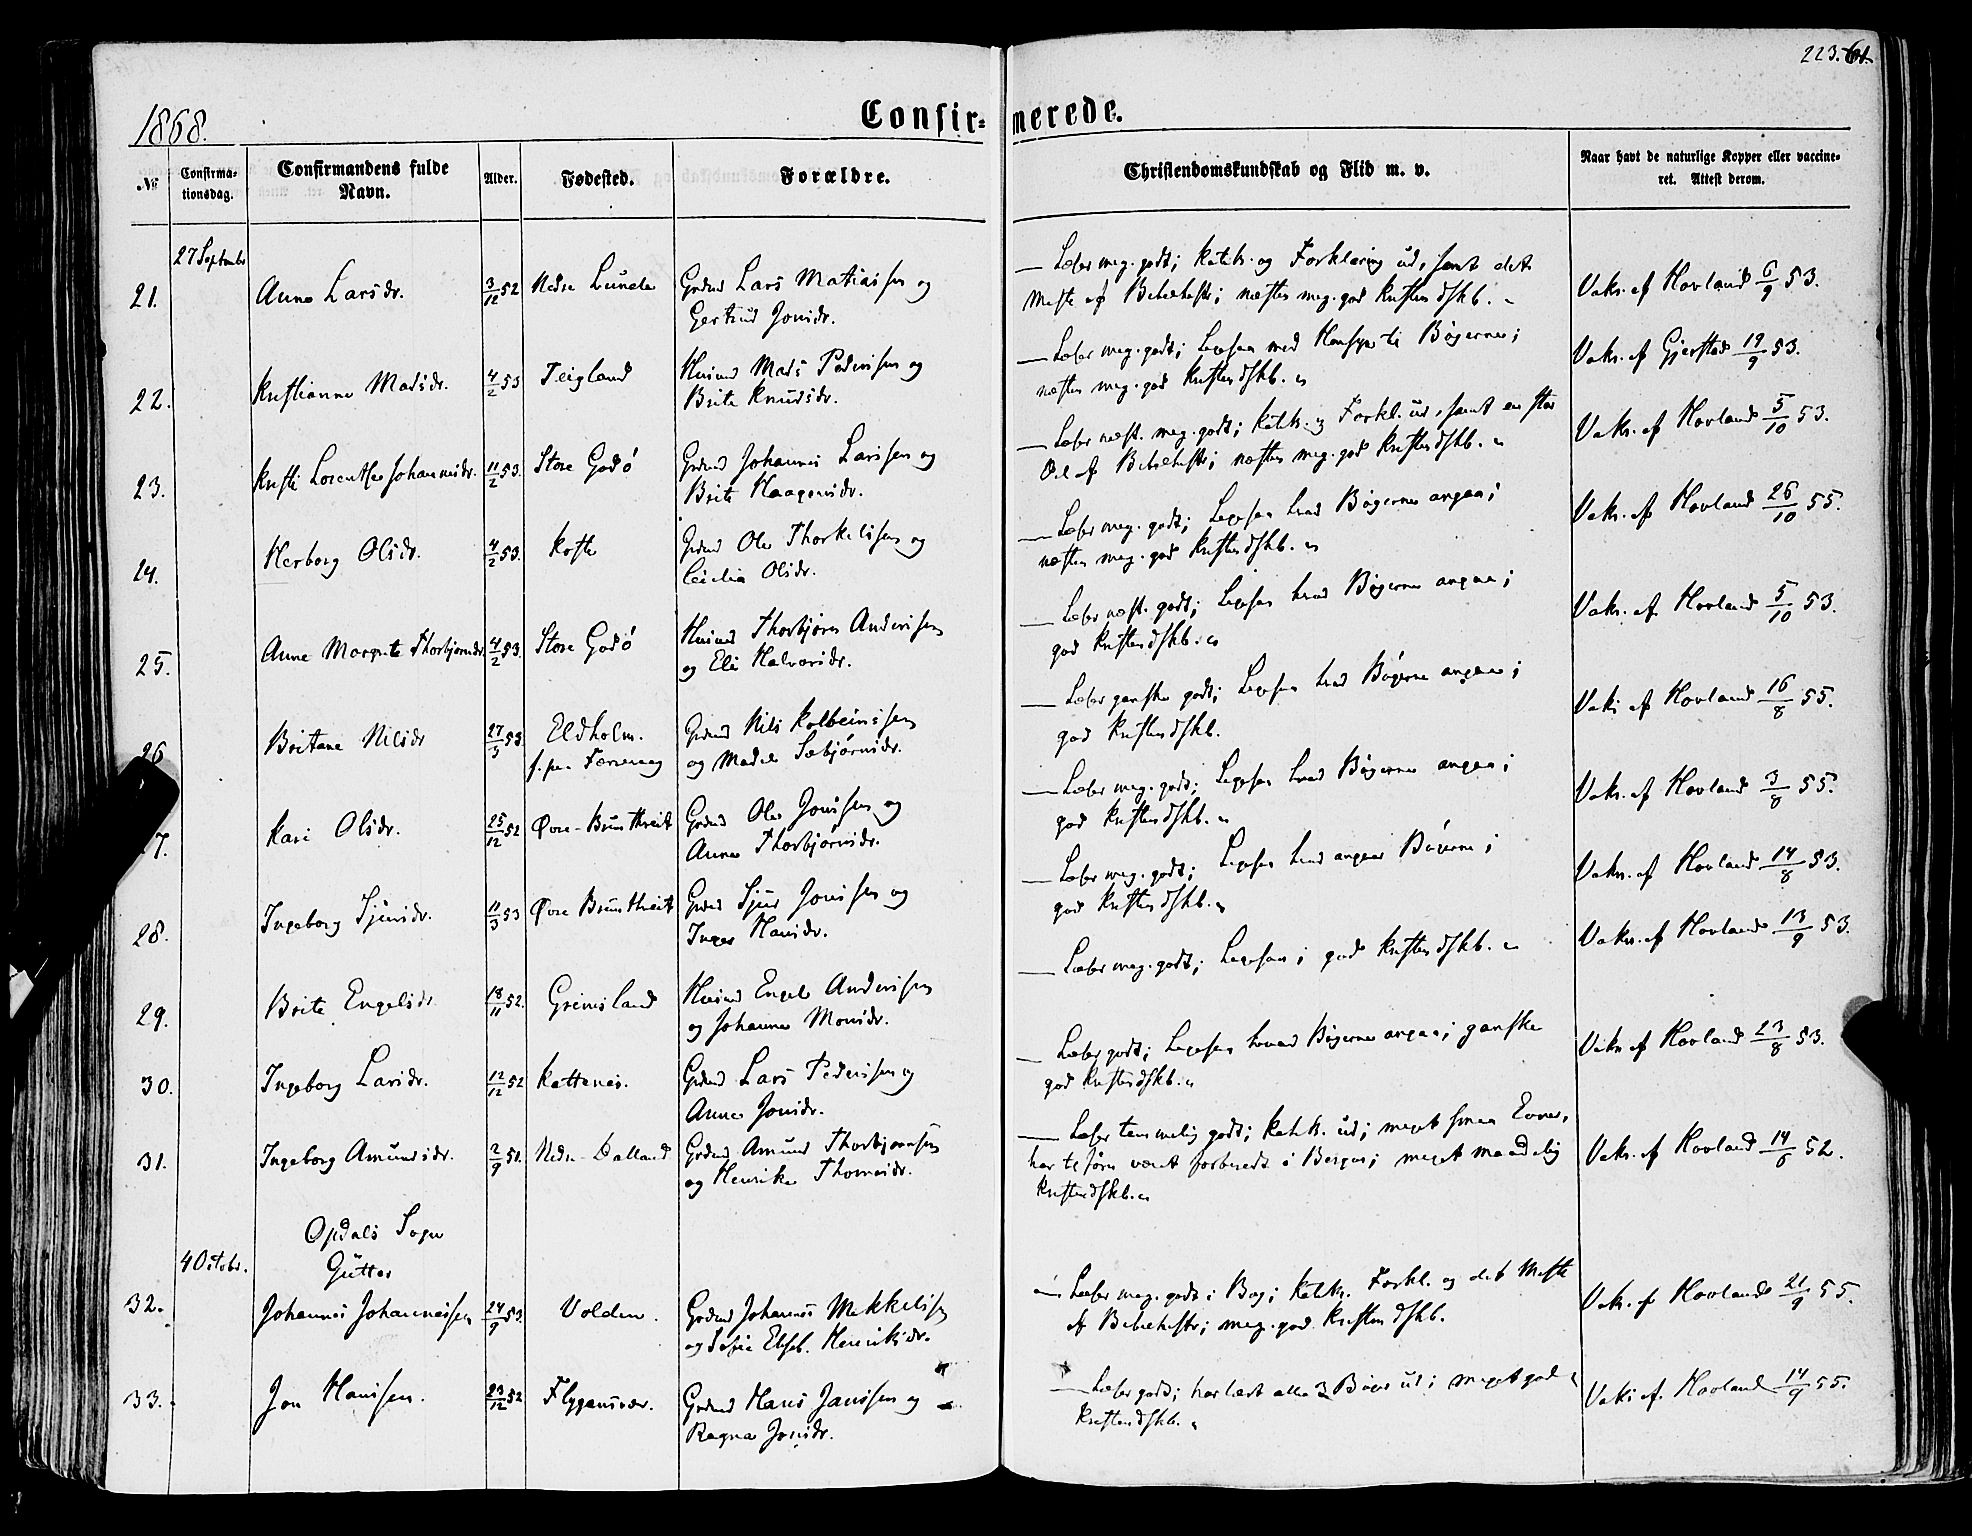 223.
1868.
Confirmerede.
№
Confirmationsdag.
Confirmandens fulde Navn.
Alder.
Fødested.
Forældre.
Christendomskundskab og Flid m. v.
Naar havt de naturlige Kopper eller vaccineret. Attest derom.
27 Septembr
21. Anna Larsdr. 3/12 52 Nedre Lunde Grdmd Lars Matiassen og
Gertrud Jonsdr.
Læser meg. godt; Katek. og Forklaring ud, samt det
Meste af Bibelhist; næsten meg. god Kristendskb.
Vaks. af Hovland 6/9 53.
22. Kristianne Madsdr. 4/2 53 Teigland Husmd Mads Pedersen og
Brita Knudsdr.
Læser meg. godt; Begernes;
næsten meg. god Kristendskb.
Vaks. af Gjerstad 19/9 53.
23. Kristi Lorentse Johannesdr. 11/2 53. Store Godø Grdmd Johannes Larssen og
Brita Haagensdr.
Læser næst. meg. godt; Katek. og Forkl. ud, samt en stor
Del af Bibelhist; næsten meg. god Kristendskb.
Vaks. af Hovland 5/10 53.
24. Herborg Olsdr. 4/2 53. Kofte Grdmd Ole Thorkelssen og
Cicilia Olsdr.
Læser meg. godt; hvad Bøgerne angaar;
næsten meg. god Kristendskb.
Vaks. af Hovland 26/10 55.
25. Anne Margreta Thorbjørnsdr. 4/2 53. Store Godø Husmd Thorbjørn Anderssen
og Eli Halvorsdr.
Læser næst. godt; hvad Bøgerne angaar;
god Kristendskb.
Vaks. af Hovland 5/10 53.
26 Britane Nilsdr 27/3 53 Eldholm. Grdmd Nils Kolbeinssen
og Sæbjørnsdr.
Læser ganske godt; hvad Bøgerne angaar;
god Kristendskb.
Vaks af Hovland 16/8 55.
7. Kari Olsdr. 25/12 52 Øvre-Bruntveit Grdmd Ole Jonssen og
Anna Thorbjørnsdr.
Læser meg. godt; hvad Bøgerne angaar;
god Kristendskb.
Vaks. af Hovland 3/8 55.
28. Ingeborg Sjursdr. 11/3 53 Øvre Bruntveit Grdmd Sjur Jonssen og
Inger Hansdr.
Læser meg. godt; hvad angaar Bøgerne;
god Kristendskb.
Vaks. af Hovland 14/8 53.
29. Brita Engelsdr. 18/11 52. Grimsland Husmd Engel Anderssen
og Johanna Monsdr.
Læser meg. godt; god Kristendskb.
Vaks. af Hovland 13/9 53.
30. Ingeborg Larsdr. 12/12 52 Kattenes. Grdmd Lars Pederssen og
Anna Jonsdr.
Læser godt; hvad Bøgerne angaar; ganske
god Kristendskb.
Vaks af Hovland 23/8 53.
31. Ingeborg Amundsdr. 2/9 51. Nedre-Dalland Grdmd Amund Thorbjørnsen
og Henrika Thomasdr.
Læser temmelig godt; Katek. ud; meget smaa Evner,
har tilforn været forberedt i Bergen; meget maadelig
Kristendskb.
Vaks. af Hovland 14/6 52.
Opdals Sogn
Gutter
4 Octobr.
32. Johannes Johannessen 24/9 53. Volden. Grdmd Johannes Mikkelssen
og Elseb. Henriksdr.
Læser meg. godt i Bog; Katek. Forkl. og det Meste
af Bibelhist; meg. god Kristendskb.
Vaks. af Hovland 21/9 55.
33. Jon Hanssen. 23/12 52 Flygansvær. Grdmd Hans Janssen og
Ragna Jonsdr.
Læser godt; har læst alle 3 Bøger ud; meget god
Kristendskb.
Vaks af. Hovland 14/9 55.